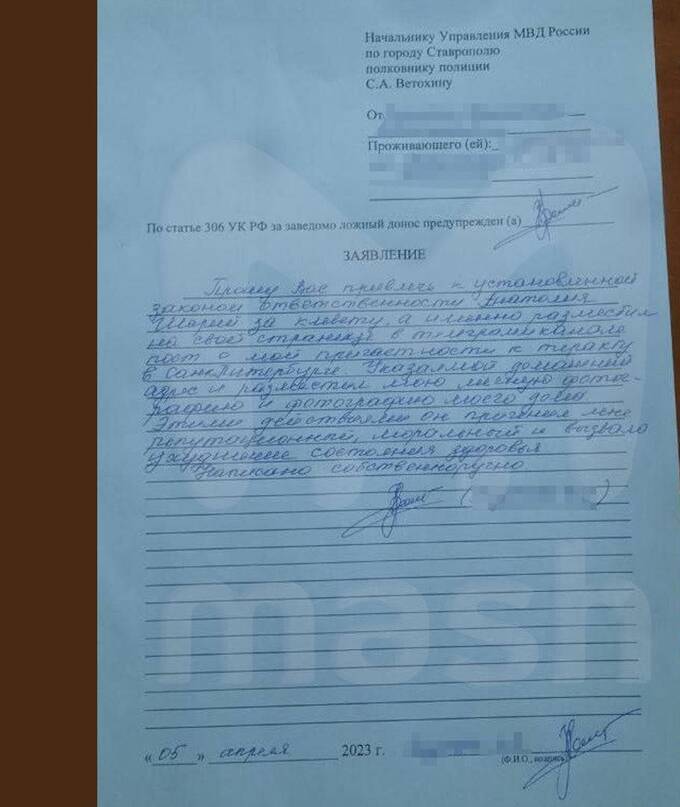 Начальнику Управления МВД России
по городу Ставрополю
полковнику полиции
С.А. Ветохину
От
Проживающего (ей):
По статье 306 УК РФ за заведомо ложный донос предупрежден (а)
ЗАЯВЛЕНИЕ
Прошу Вас привлечь к установленной
законом ответственности Анатолия
Шарий за клевету, а именно разместил
на своей странице в телеграмм канале
пост о моей причастности к теракту
в Санкт Петербурге. Указал мой домашний
адрес и разместил мою личную фотог-
рафию и фотографию моего дома.
Этими действиями он причинил мне
репутационный, моральный и вызвало
ухудшение состояния здоровья
Написано собственноручно
mash
«05» апреля 2023 г.
(Ф.И.О., подпись)